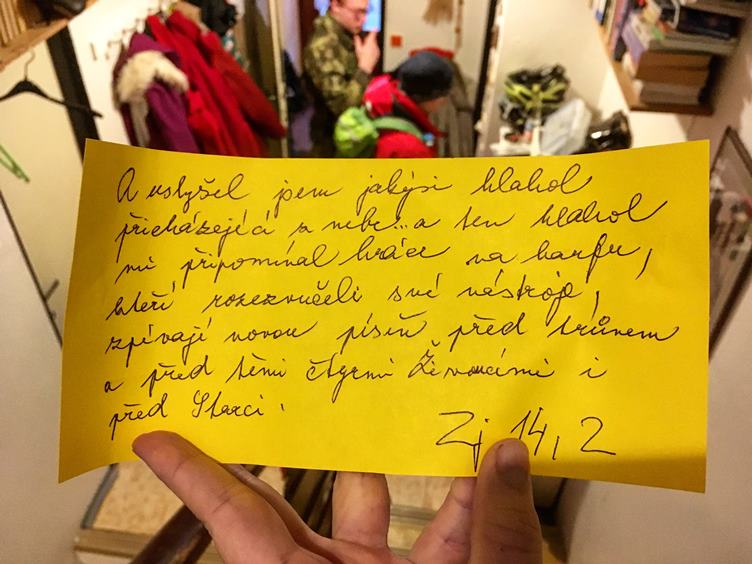 A uslyšel jsem jakýsi hlahol
přicházející z nebe... a ten hlahol
mi připomínal hráče na harfu,
kteří rozezvučeli své nástroje,
zpívají novou píseň před trůnem
a před těmi čtyřmi Živoucími i
před Starci.
Zj 14,2